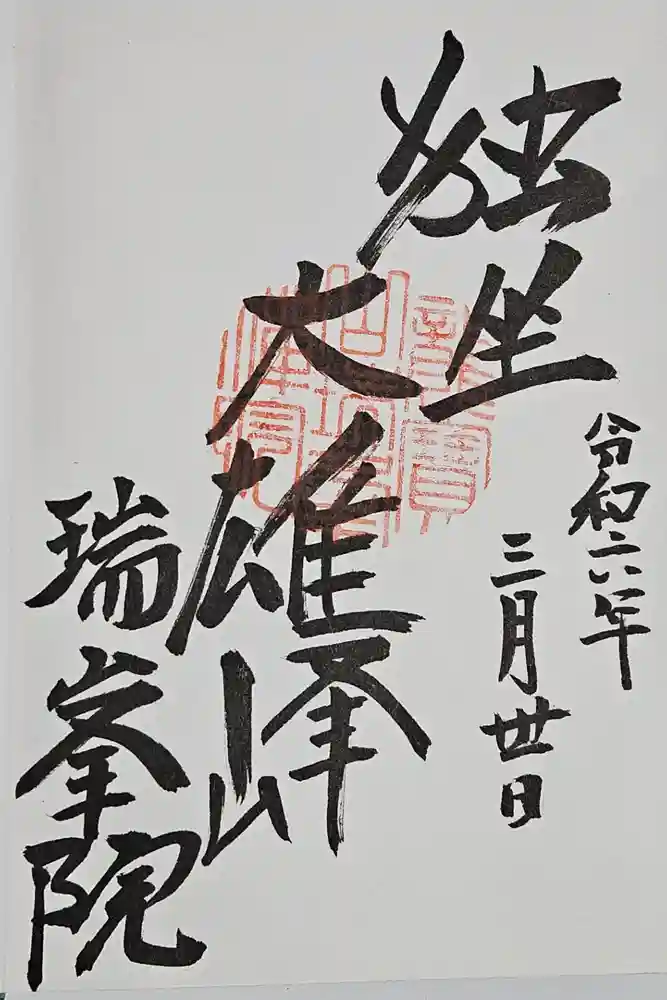 独坐
大雄峰
令和六年
三月丗日
瑞峯院